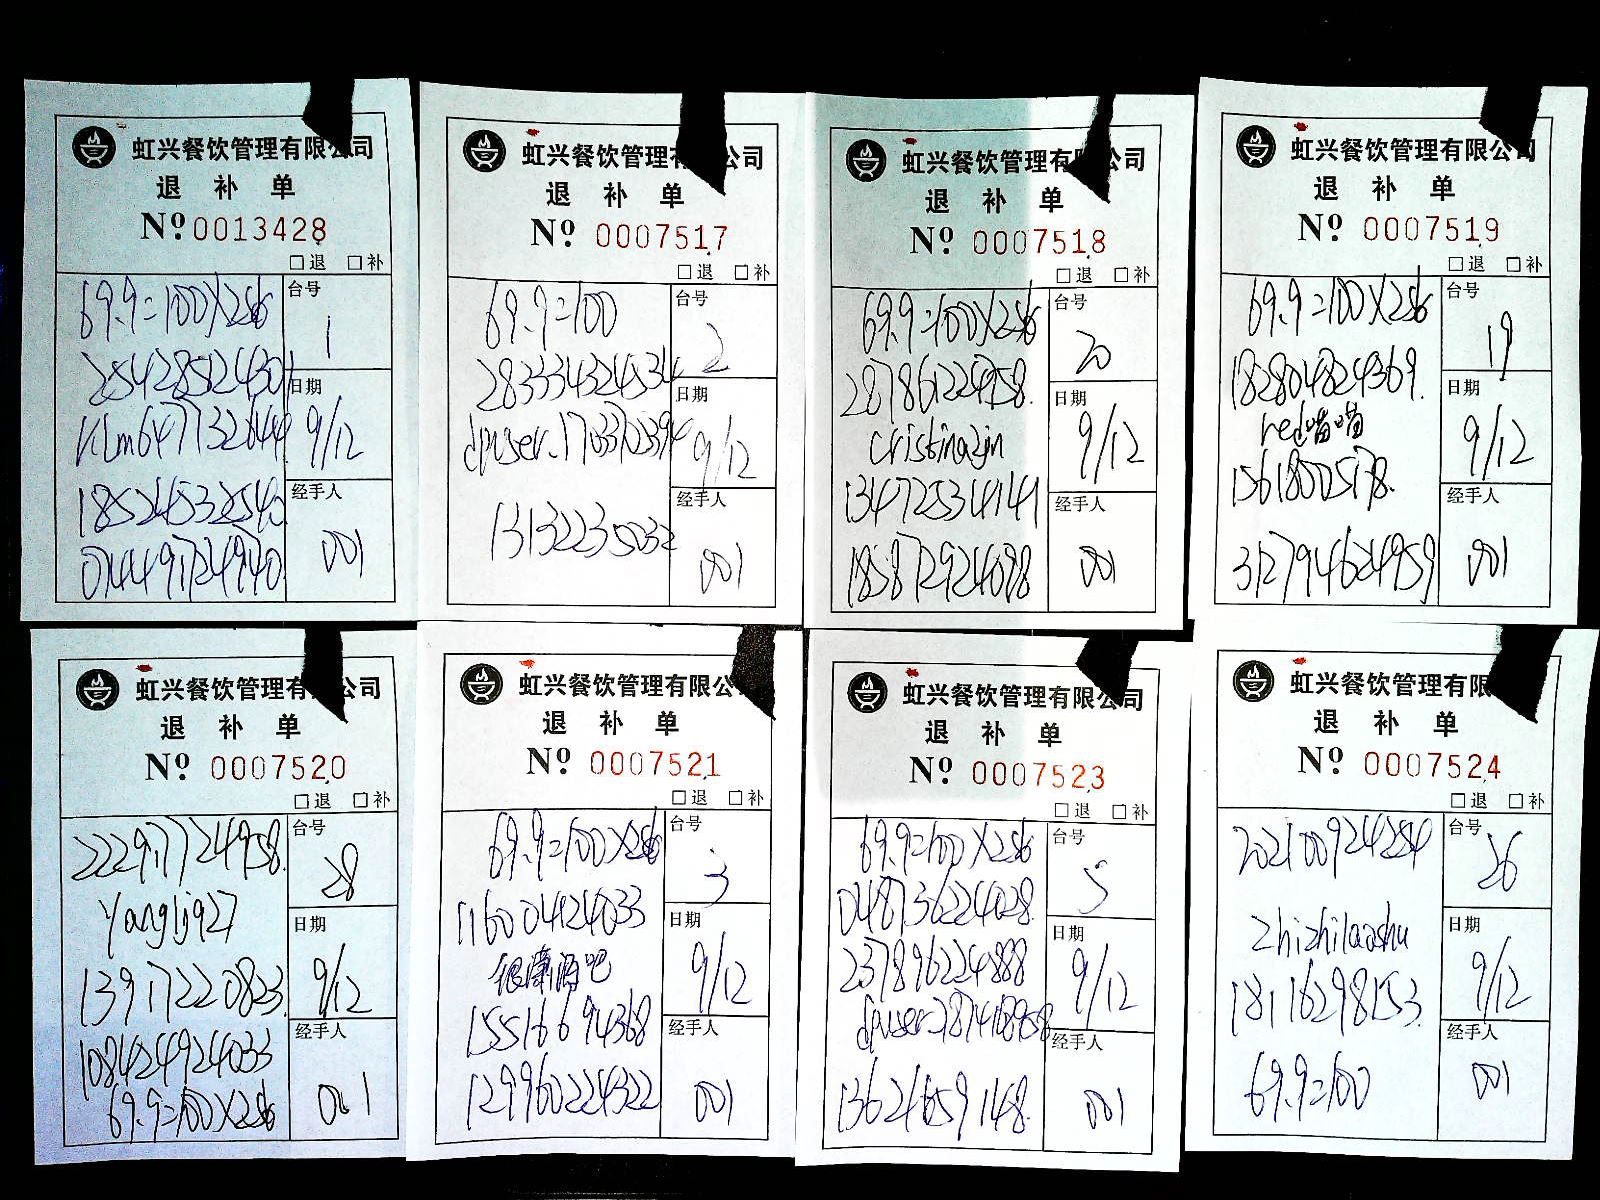 虹兴餐饮管理有限公司
退 补 单
Nº 0013428
□退 □补
69.9=100X256
台号
1
日期
9/12
185245322543
经手人
001
虹兴餐饮管理有 公司
退 补 单
Nº 0007517
□退 □补
69.9=100
台号
2
283334324534
日期
9/12
13132235032
经手人
001
虹兴餐饮管理有 公司
退 补 单
Nº 0007518
□退 □补
69.9=100X256
台号
20
287861224958.
日期
cristinazjn
9/12
13472534141
经手人
185872924098
001
虹兴餐饮管理有限公司
退 补 单
Nº 0007519
□退 □补
69.9=100X256
台号
19
182804824369.
日期
red喵喵
9/12
15618005178.
经手人
312794624959
001
虹兴餐饮管理有 公司
退 补 单
Nº 0007520
□退 □补
222917724958.
台号
28
yanglj927
日期
13917220823.
9/12
108424924033
经手人
69.9=100X256
001
虹兴餐饮管理有限公
退 补 单
Nº 0007521
□退 □补
69.9=100X256
台号
3
116004124033
日期
9/12
15516694368
经手人
129960224322
001
虹兴餐饮管理有限公司
退 补 单
Nº 0007523
□退 □补
69.9=100X256
台号
5
048736224028.
日期
237896224888
9/12
经手人
13621659148.
001
虹兴餐饮管理有限
退 补 单
Nº 0007524
□退 □补
202100924284
台号
26
日期
zhizhilaoshu
9/12
18116298153.
经手人
69.9=100
001